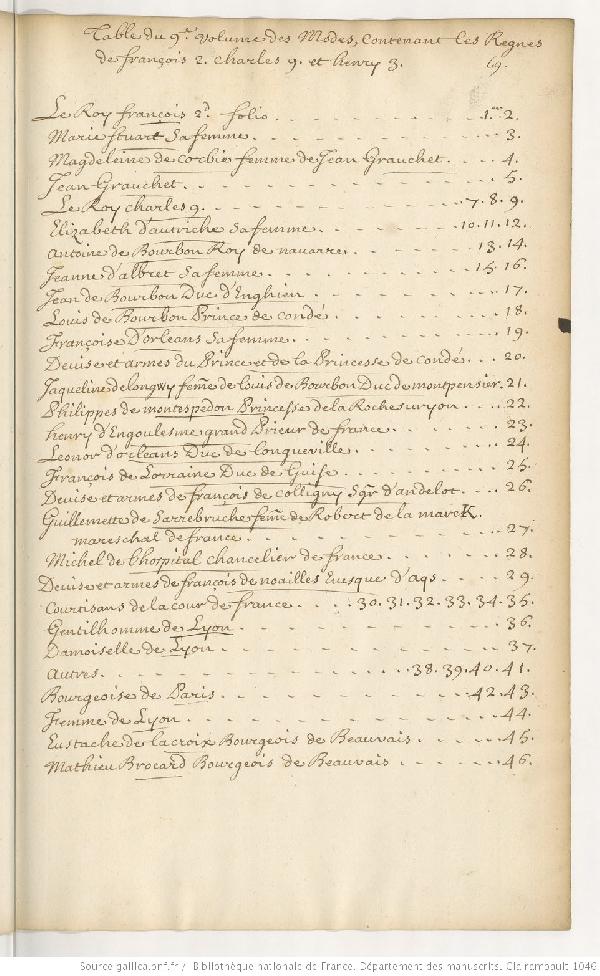 Table du 9.e volume des Modes, Contenant les Regnes
de françois 2. charles 9. et henry 3. 69.
Le Roy françois 2d folio . . . . . . . . . . 1. 2.
Marie stuart sa femme . . . . . . . . . . 3.
Magdeleine de corbie femme de Jean Grauchet . . . . 4.
Jean Grauchet . . . . . . . . . . 5.
Le Roy charles 9. . . . . . . . . . . 7. 8. 9.
Elizabeth d'autriche sa femme . . . . . . . 10. 11. 12.
Antoine de Bourbon Roy de navarre . . . . . . 13. 14.
Jeanne d'albret sa femme . . . . . . . . 15. 16.
Jean de Bourbon Duc d'Enghien . . . . . . . . 17.
Louis de Bourbon Prince de condé . . . . . . . 18.
Françoise D'orleans sa femme . . . . . . . . 19.
Devise et armes du Prince et de la Princesse de condé . . . 20.
Jaqueline de longwy feme de louis de Bourbon Duc de montpensier . 21.
Philippes de montespedon Princesse de la Roche suryon . . . . 22.
henry d'Engoulesme grand Prieur de france . . . . . . 23.
Leonor d'orleans Duc de longueville . . . . . . . 24.
François de Lorraine Duc de Guise . . . . . . . 25.
Devise et armes de françois de colligny Sgr d'andelot . . . . 26.
Guillemette de Sarrebruche feme de Robert de la marcK.
mareschal de france . . . . . . . . . . 27.
Michel de l'hospital chancelier de france . . . . . . 28.
Devise et armes de françois de noailles Evesque d'aqs . . . . 29.
Courtisans de la cour de france . . . . 30. 31. 32. 33. 34. 35.
Gentilhomme de Lyon . . . . . . . . . . 36.
Damoiselle de Lyon . . . . . . . . . . 37.
Autres . . . . . . . . . . 38. 39. 40. 41.
Bourgeoise de Paris . . . . . . . . . . 42. 43.
Femme de Lyon . . . . . . . . . . 44.
Eustache de la croix Bourgeois de Beauvais . . . . . . 45.
Mathieu Brocard Bourgeois de Beauvais . . . . . . 46.
Source gallica.bnf.fr / Bibliothèque nationale de France. Département des manuscrits. Clairambault 1046